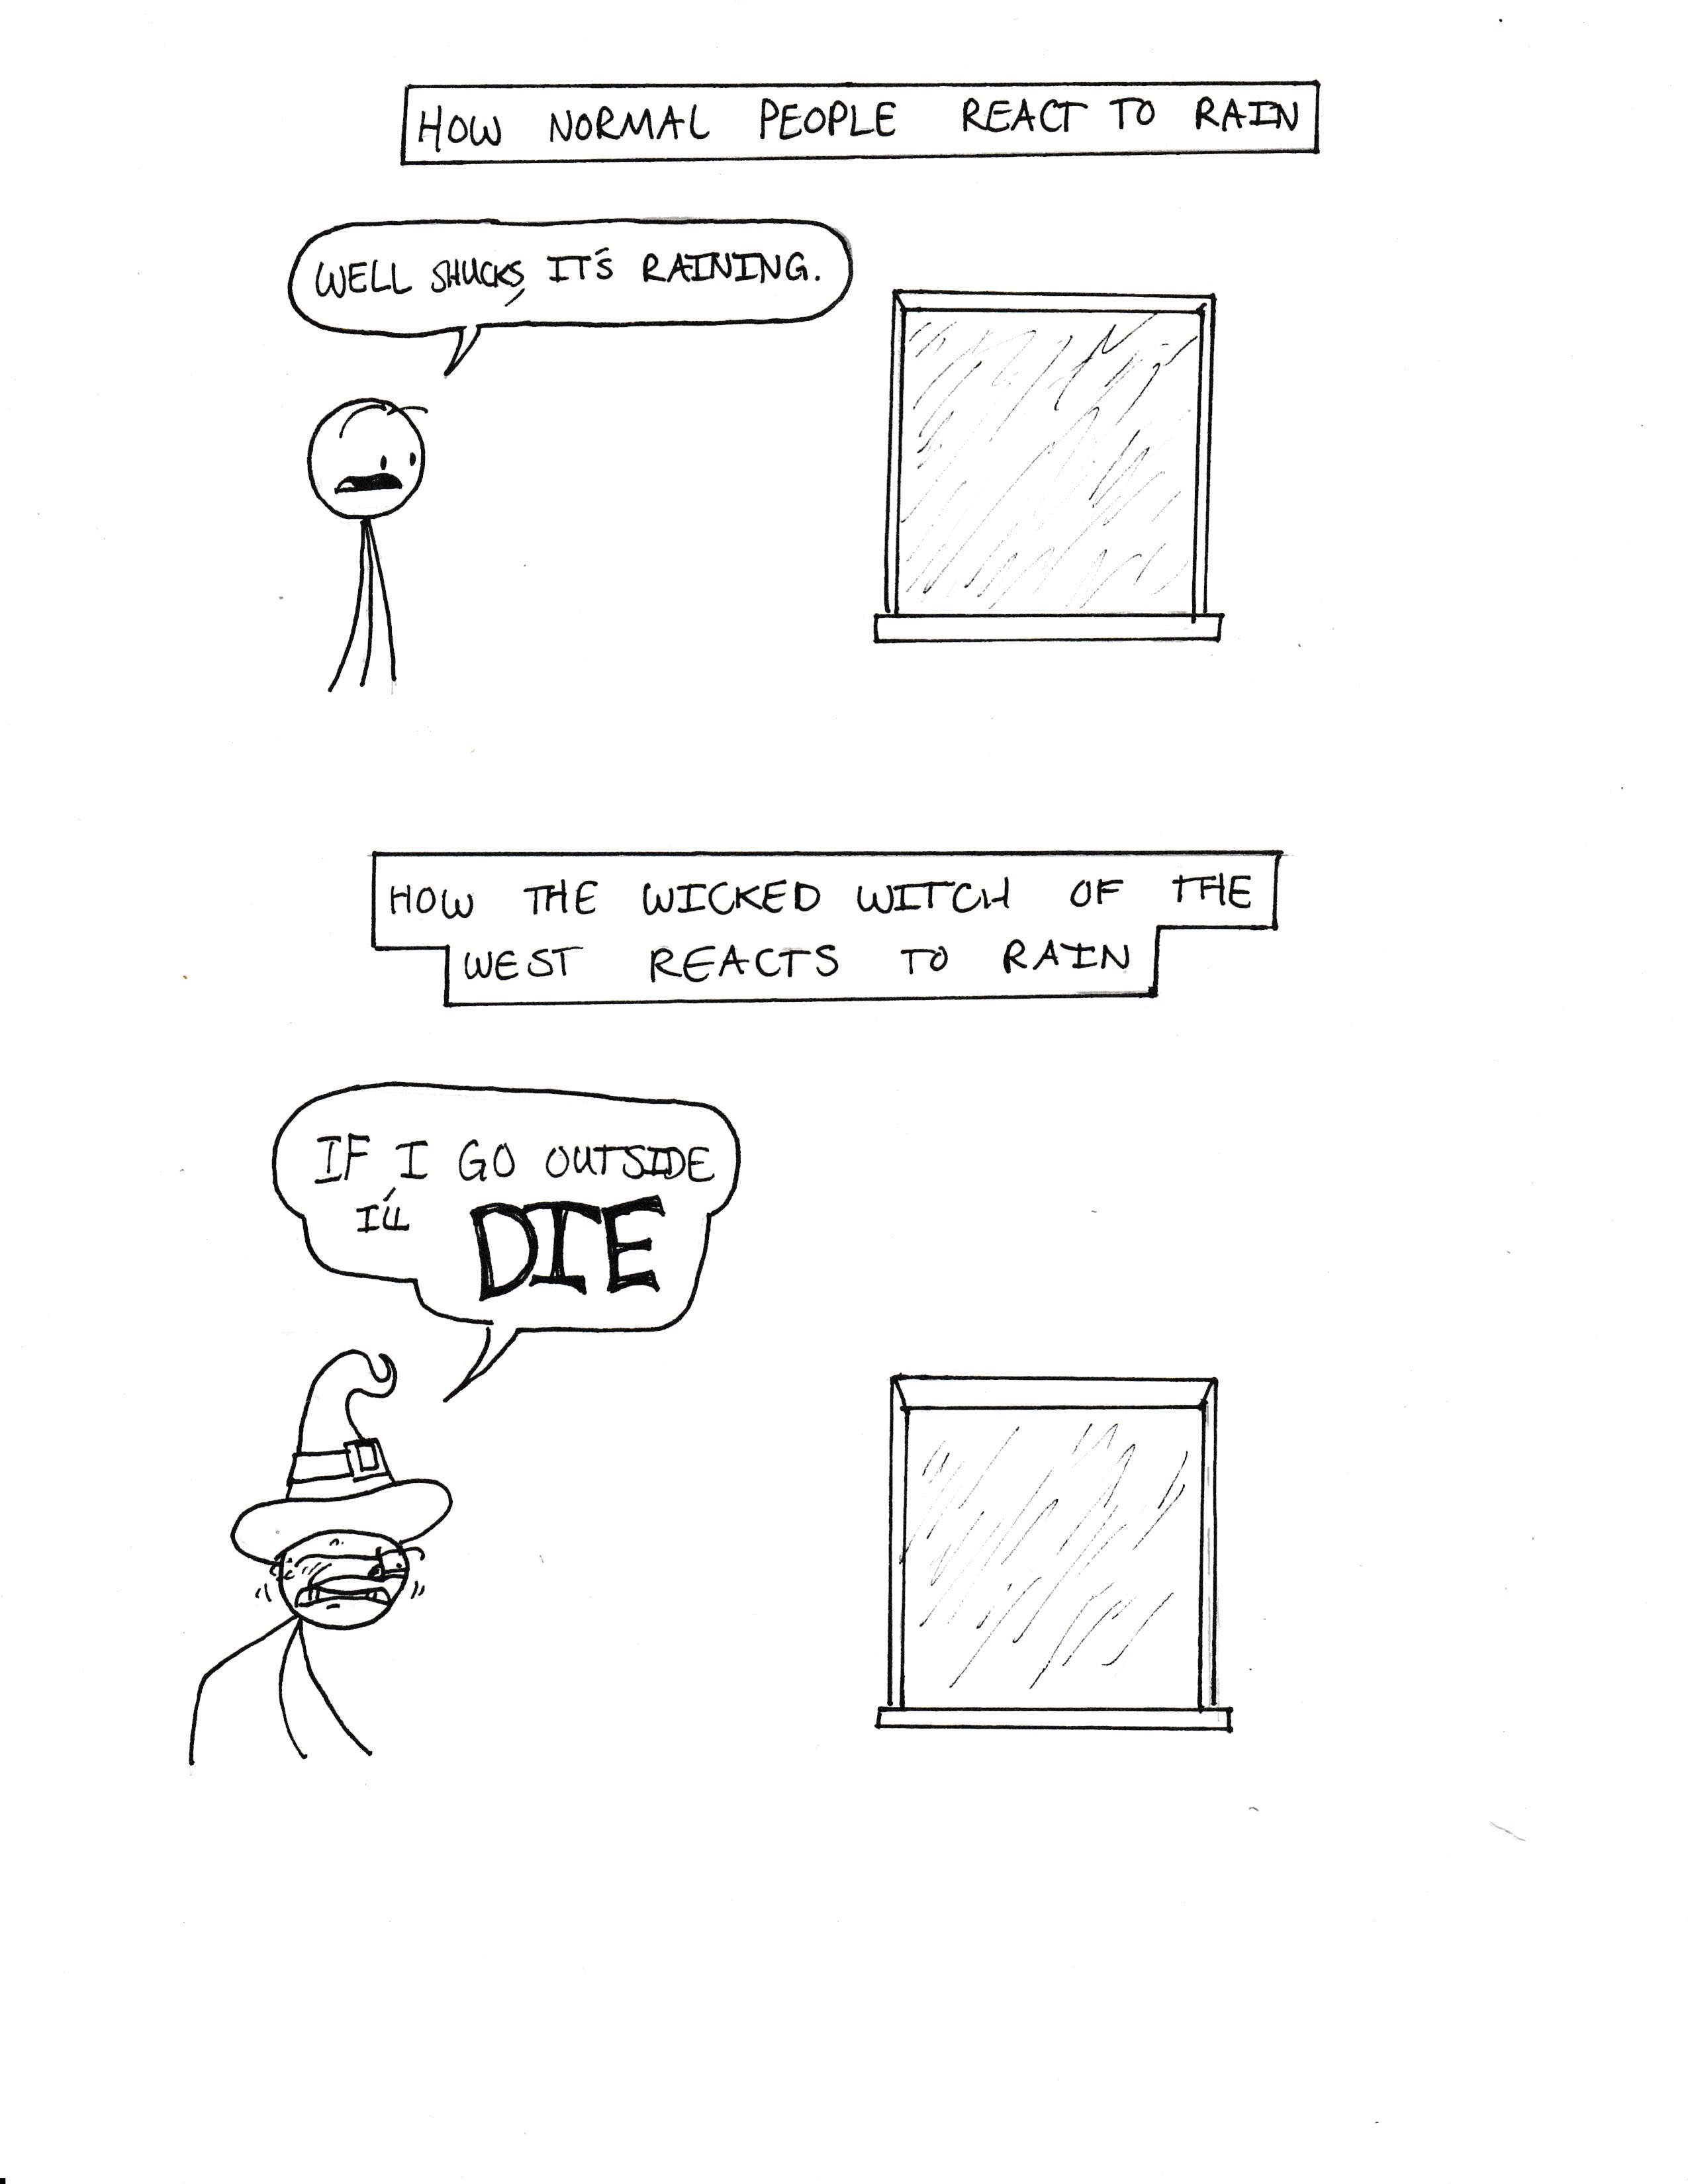 HOW NORMAL PEOPLE REACT TO RAIN
WELL SHUCKS, IT'S RAINING.
HOW THE WICKED WITCH OF THE
WEST REACTS TO RAIN
IF I GO OUTSIDE
I'LL DIE